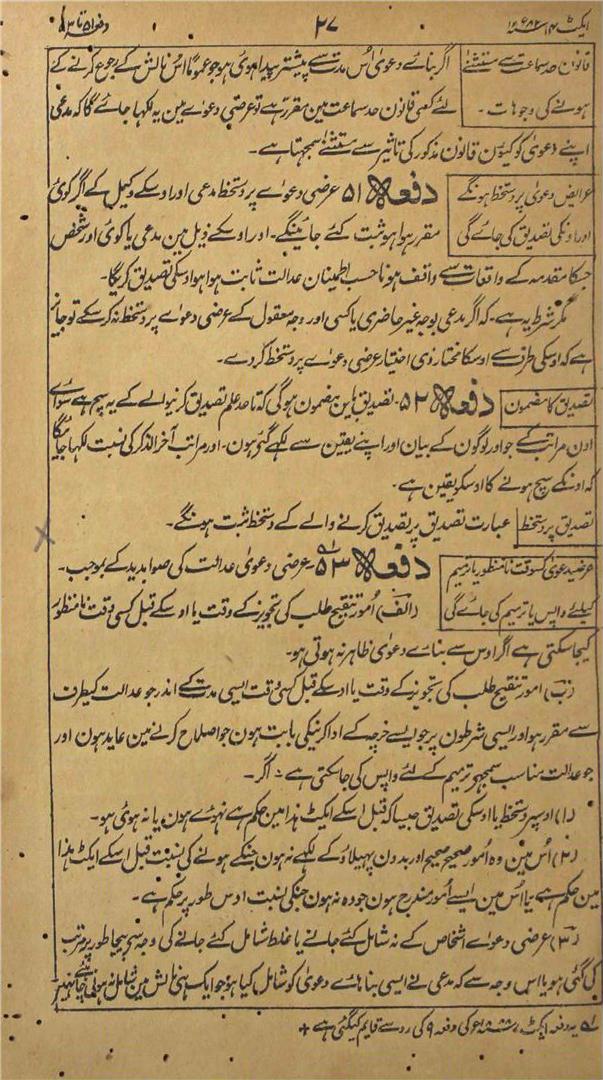 ایکٹ ۱۴ سنہ ۱۸۸۲ع ۲۷ دفعہ ۵۱ تا ۵۳
قانون حد سماعت سے مستثنےٰ اگر بنائے دعویٰ اُس مدت سے پیشتر پیدا ہوئی ہو جو عموماً اُس نالش کے رجوع کرنے کے
ہونے کی وجوہات ۔ لئے کسی قانون حد سماعت مین مقرر ہے تو عرضی دعوے مین یہ لکھا جائے گا کہ مدعی
اپنے دعویٰ کو کیون قانون مذکور کی تاثیر سے مستثنےٰ سمجھتا ہے ۔
عرایض دعویٰ پر دستخط ہونگے دفعہ ۵۱ عرضی دعوے پر دستخط مدعی اور اوسکے وکیل کے اگر کوئی
اور اونکی تصدیق کی جائے گی مقرر ہوا ہو ثبت کئے جائینگے ۔ اور اوسکے ذیل مین مدعی یا کوئی اور شخص
جسکا مقدمہ کے واقعات سے واقف ہونا حسب اطمینان عدالت ثابت ہوا ہو اوسکی تصدیق کریگا ۔
مگر شرط یہ ہے ۔ کہ اگر مدعی بوجہ غیر حاضری یا کسی اور وجہ معقول کے عرضی دعوے پر دستخط نہ کر سکے تو جائز
ہے کہ اوسکی طرف سے اوسکا مختار ذی اختیار عرضی دعوے پر دستخط کر دے ۔
تصدیق کا مضمون دفعہ ۵۲ ۔ تصدیق باین مضمون ہوگی کہ تا حد علم تصدیق کرنیوالے کے یہ سچ ہے سوائے
اون مراتب کے جو اور لوگون کے بیان اور اپنے یقین سے لکھے گئی ہون ۔ اور مراتب آخر الذکر کی نسبت لکھا جائیگا
کہ اونکے سچ ہونے کا اوسکو یقین ہے ۔
تصدیق پر دستخط عبارت تصدیق پر تصدیق کرنے والے کے دستخط ثبت ہونگے ۔
عرضیدعویٰ کسوقت نامنظور یا ترمیم دفعہ ۵۳ عرضی دعویٰ عدالت کی صوابدید کے بموجب ۔
کیلئے واپس یا ترمیم کی جائے گی (الف) امور تنقیح طلب کی تجویز کے وقت یا اوسکے قبل کسی وقت نامنظور
کیجا سکتی ہے اگر اوس سے بنائے دعویٰ ظاہر نہ ہوتی ہو ۔
(ب) امور تنقیح طلب کی تجویز کے وقت یا اوسکے قبل کسی وقت ایسی مدت کے اندر جو عدالت کیطرف
سے مقرر ہو اور ایسی شرطون پر جو ایسے خرچہ کے ادا کرنیکی بابت ہون جو اصلاح کرنے مین عاید ہون اور
جو عدالت مناسب سمجھے ترمیم کے لئے واپس کی جا سکتی ہے : اگر ۔
(۱) اوسپر دستخط یا اوسکی تصدیق جیسا کہ قبل اسکے ایکٹ ہذا مین حکم ہے نہوئے ہون یا نہ ہوئی ہو ۔
(۲) اُس مین وہ اُمور صحیح صحیح اور بدون پھیلاؤ کے لکھے نہ ہون جنکے ہونے کی نسبت قبل اسکے ایکٹ ہذا
مین حکم ہے یا اُس مین ایسے اُمور مندرج ہون جو دہ نہ ہون جنکی نسبت اوس طور پر حکم ہے ۔
(۳) عرضی دعوے اشخاص کے نہ شامل کئے جانے یا غلط شامل کئے جانے کی وجہ سے بیجا طور پر مرتب
کی گئی ہو یا اس وجہ سے کہ مدعی نے ایسی بناہائے دعویٰ کو شامل کیا ہو جو ایک ہی نالش مین شامل نہ ہونی چاہئے
۱ یہ دفعہ ایکٹ ۷ سنہ ۱۸۸۸ع کی دفعہ ۹ کی رو سے قایم کیگئی ہے +